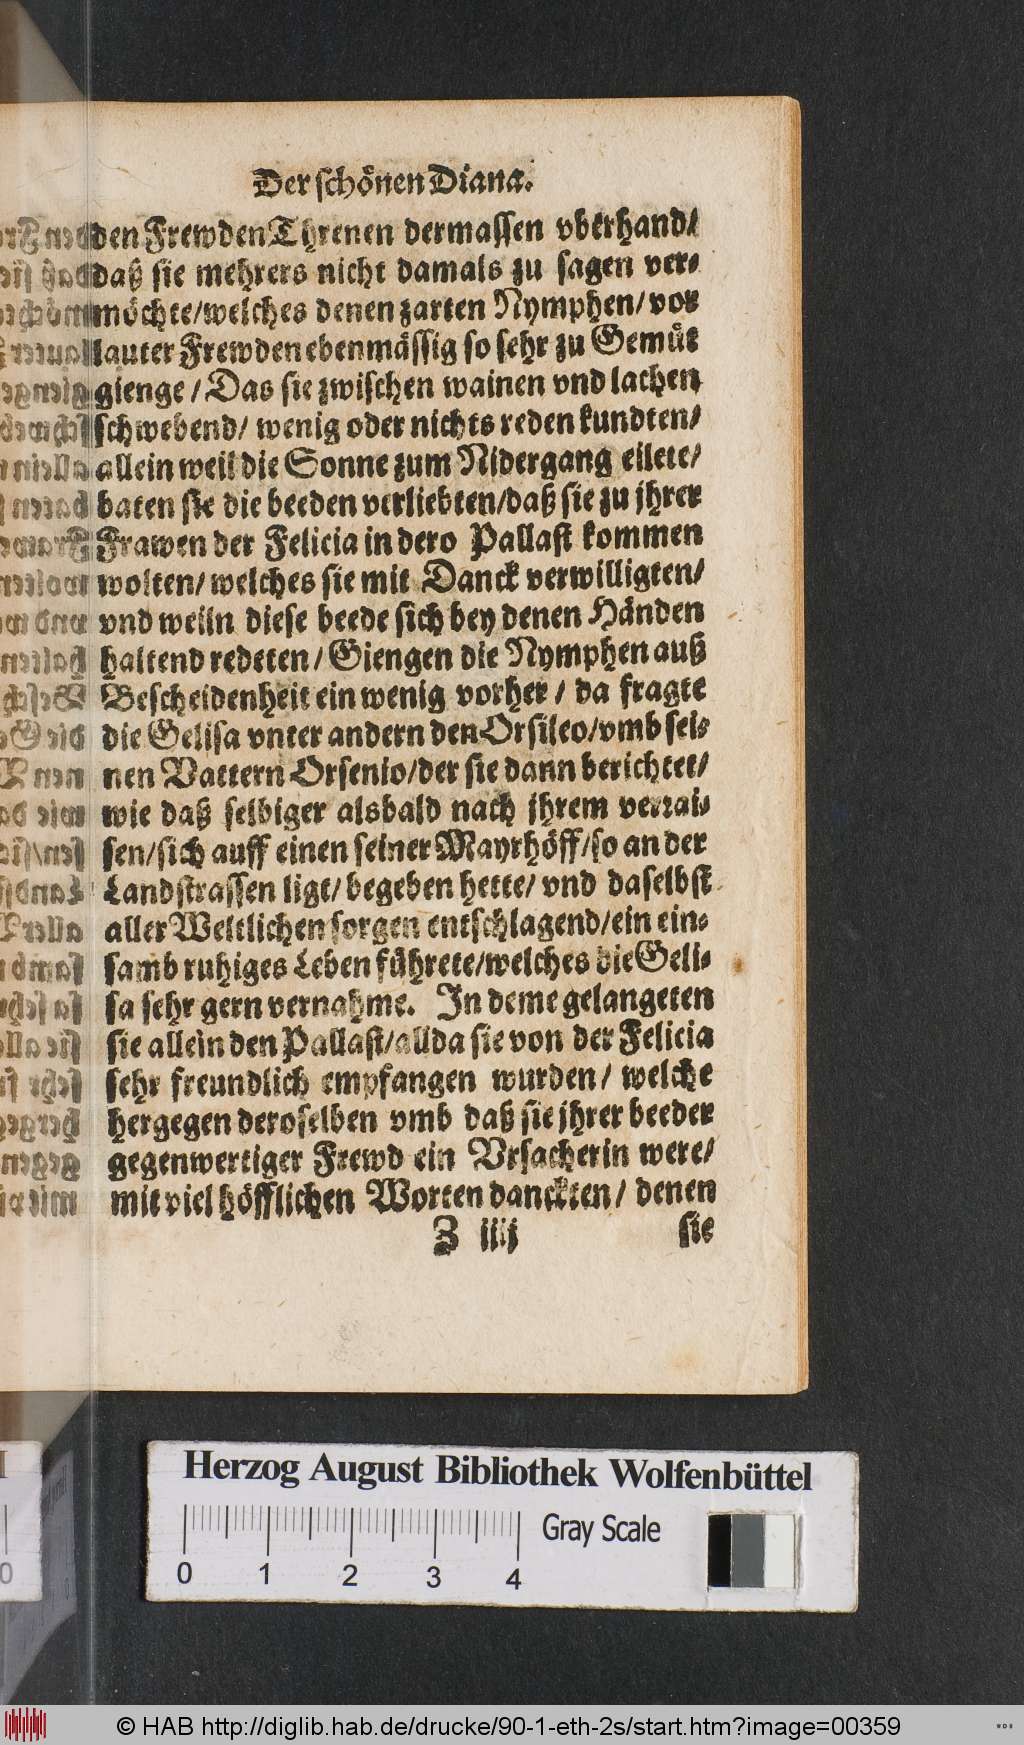 Der schönen Diana.
den Frewden Threnen dermassen vberhand/
daß sie mehrers nicht damals zu sagen ver-
möchte/welches denen zarten Nymphen/ vor
lauter Frewden ebenmässig so sehr zu Gemüt
gienge / Das sie zwischen wainen vnd lachen
schwebend/ wenig oder nichts reden kundten/
allein weil die Sonne zum Nidergang eilete/
baten sie die beeden verliebten/daß sie zu jhrer
Frawen der Felicia in dero Pallast kommen
wolten/ welches sie mit Danck verwilligten/
vnd weiln diese beede sich bey denen Händen
haltend redeten / Giengen die Nymphen auß
Bescheidenheit ein wenig vorher / da fragte
die Gelisa vnter andern den Orsileo/vmb sei-
nen Vattern Orsenio/der sie dann berichtet/
wie daß selbiger alsbald nach jhrem verrai-
sen/sich auff einen seiner Mayrhöff/so an der
Landstrassen ligt/ begeben hette/ vnd daselbst
aller Weltlichen sorgen entschlagend/ein ein-
samb ruhiges Leben führete/welches die Geli-
sa sehr gern vernahme. In deme gelangeten
sie allein den Pallast/allda sie von der Felicia
sehr freundlich empfangen wurden/ welche
hergegen deroselben vmb daß sie jhrer beeder
gegenwertiger Frewd ein Vrsacherin were/
mit viel höfflichen Worten danckten/ denen
Z iiij sie
Herzog August Bibliothek Wolfenbüttel
Gray Scale
0 1 2 3 4
© HAB http://diglib.hab.de/drucke/90-1-eth-2s/start.htm?image=00359